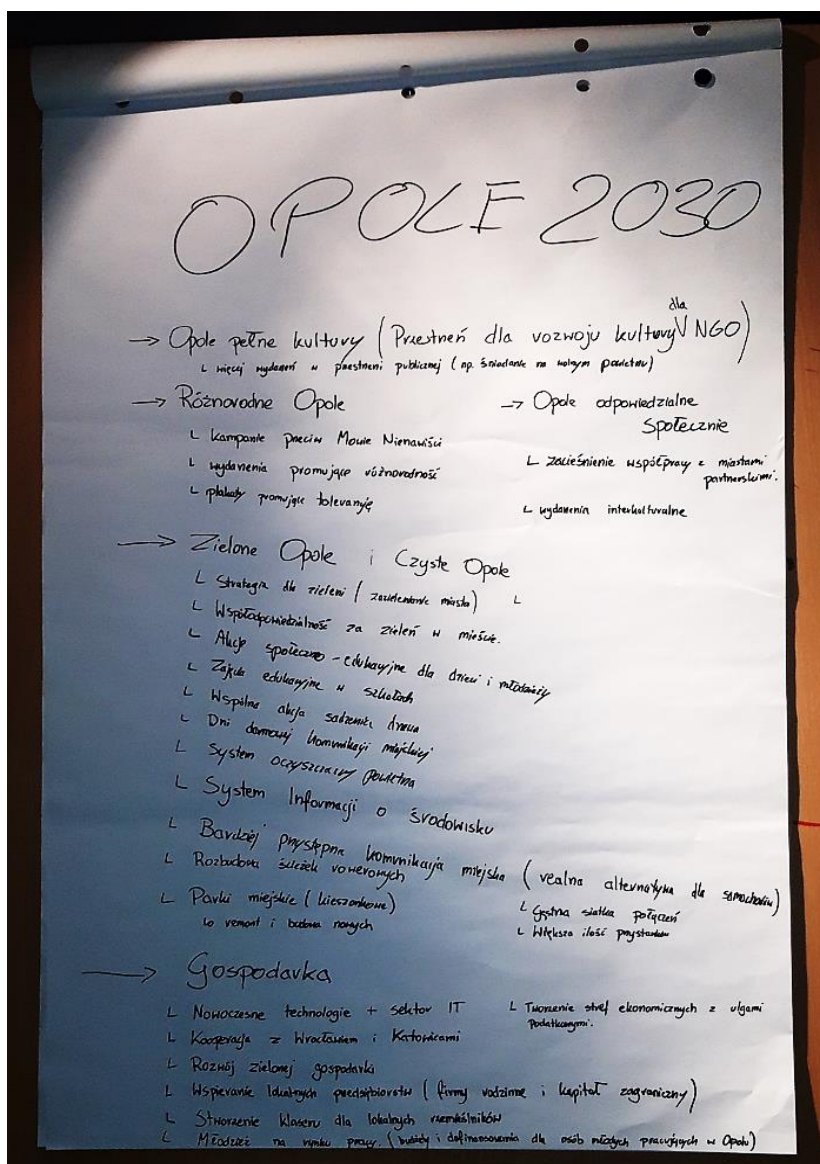 OPOLE 2030
→ Opole pełne kultury (Przestrzeń dla rozwoju kultury V dla NGO)
└ więcej wydarzeń w przestrzeni publicznej (np. śniadanie na wolnym powietrzu)
→ Różnorodne Opole
└ kampanie przeciw Mowie Nienawiści
└ wydarzenia promujące różnorodność
└ plakaty promujące tolerancję
→ Opole odpowiedzialne
Społecznie
└ zacieśnienie współpracy z miastami
partnerskimi.
└ wydarzenia interkulturalne
→ Zielone Opole i Czyste Opole
└ Strategia dla zieleni (zazielenianie miasta) └
└ Współodpowiedzialność za zieleń w mieście.
└ Akcje społeczno-edukacyjne dla dzieci i młodzieży
└ Zajęcia edukacyjne w szkołach
└ Wspólne akcje sadzenia drzew
└ Dni darmowej komunikacji miejskiej
└ System oczyszczania powietrza
└ System Informacji o środowisku
└ Bardziej przystępna komunikacja miejska (realna alternatywa dla samochodów)
└ Gęstna siatka połączeń
└ Większa ilość przystanków
└ Rozbudowa ścieżek rowerowych
└ Parki miejskie (kieszonkowe)
└ remont i budowa nowych
→ Gospodarka
└ Nowoczesne technologie + sektor IT
└ Tworzenie stref ekonomicznych z ulgami
podatkowymi.
└ Kooperacja z Wrocławiem i Katowicami
└ Rozwój zielonej gospodarki
└ Wspieranie lokalnych przedsiębiorstw (firmy rodzinne i kapitał zagraniczny)
└ Stworzenie klastru dla lokalnych rzemieślników
└ Młodzież na rynku pracy. (i dofinansowania dla osób młodych pracujących w Opolu)